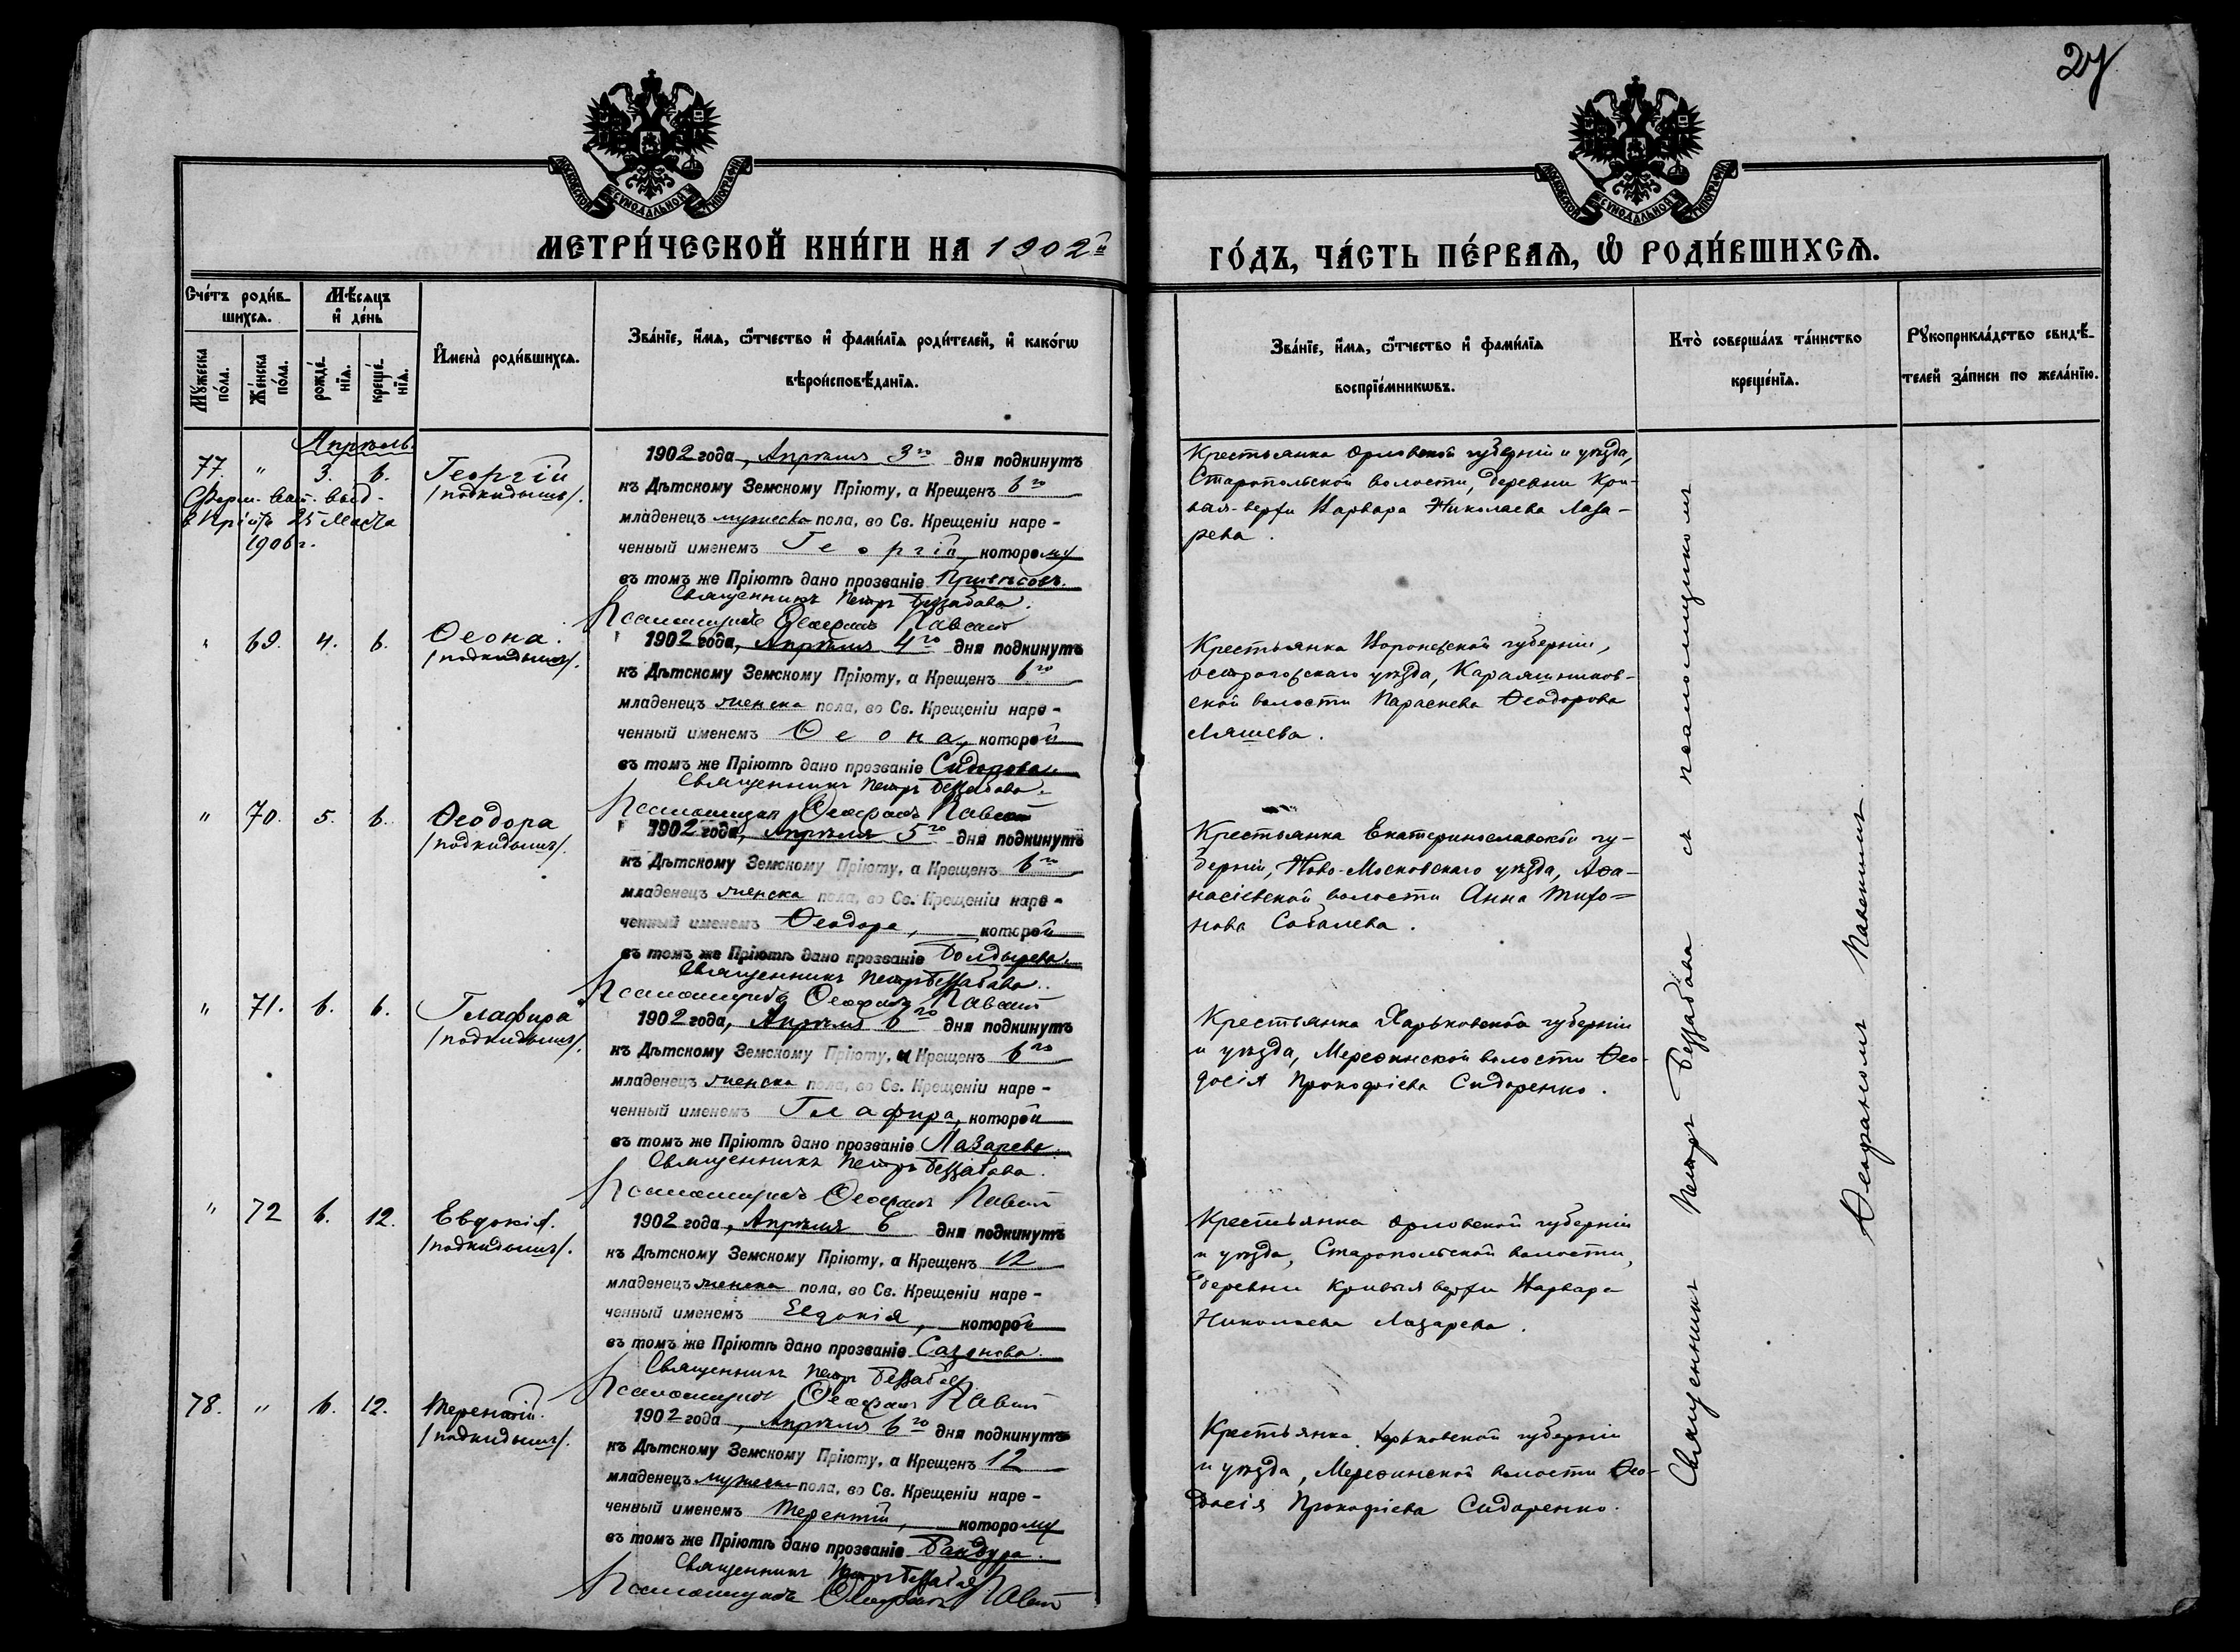 27
МОСКОВСКОЙ СѴНОДАЛЬНОЙ ТИПОГРАФІИ
МОСКОВСКОЙ СѴНОДАЛЬНОЙ ТИПОГРАФІИ
МЕТРИ́ЧЕСКОЙ КНИ́ГИ НА 1902й
ГО́ДЪ, ЧА́СТЬ ПЕ́РВАѦ, Ѿ РОДИ́ВШИХСѦ.
Сче́тъ роди́в-
шихсѧ.
Мѣ́сѧцъ
и҆ де́нь
Мꙋ́жеска
по́ла.
Же́нска
по́ла.
рожде́-
нїѧ.
креще́-
нїѧ.
И҆мена̀ роди́вшихсѧ.
Зва́нїе, и҆́мѧ, ѻ҆́тчество и҆ фами́лїѧ роди́телей, и҆ како́гѡ
вѣроисповѣ́данїѧ.
Зва́нїе, и҆́мѧ, ѻ҆́тчество и҆ фами́лїѧ
воспрїе́мникѡвъ.
Кто̀ соверша́лъ та́инство
креще́нїѧ.
Рꙋкоприкла́дство свидѣ́-
телей за́писи по жела́нїю.
Апрѣль.
77. " 3. 6. Георгій
/подкидышъ/.
25 Марта
1906 г.
1902 года, Апрѣля 3го дня подкинутъ
къ Дѣтскому Земскому Пріюту, а Крещенъ 6го
младенецъ мужеска пола, во Св. Крещеніи наре-
ченный именемъ Георгій, которому
въ томъ же Пріютѣ дано прозваніе
Священникъ Петръ Беззабава.
Псаломщикъ Ѳеофанъ
Крестьянка Орловской губерніи и уѣзда,
Старопольской волости, деревни Кри-
вая-верхи Варвара Николаева Лаза-
рева.
" 69. 4. 6. Ѳеона.
/подкидышъ/.
1902 года, Апрѣля 4го дня подкинутъ
къ Дѣтскому Земскому Пріюту, а Крещенъ 6го
младенецъ женска пола, во Св. Крещеніи наре-
ченный именемъ Ѳеона, которой
въ томъ же Пріютѣ дано прозваніе Сидорова.
Священникъ Петръ Беззабава.
Псаломщикъ Ѳеофанъ
Крестьянка Воронежской губерніи,
Острогожскаго уѣзда, Караяшников-
ской волости Параскева Ѳеодорова
Ляшева.
" 70. 5. 6. Ѳеодора
/подкидышъ/.
1902 года, Апрѣля 5го дня подкинутъ
къ Дѣтскому Земскому Пріюту, а Крещенъ 6го
младенецъ женска пола, во Св. Крещеніи наре-
ченный именемъ Ѳеодора, которой
въ томъ же Пріютѣ дано прозваніе Болдырева.
Священникъ Петръ Беззабава.
Псаломщикъ Ѳеофанъ
Крестьянка Екатеринославской гу-
берніи, Ново-Московскаго уѣзда, Аѳа-
насіевской волости Анна Тихо-
нова Соболева.
" 71. 6. 6. Глафира
/подкидышъ/.
1902 года, Апрѣля 6го дня подкинутъ
къ Дѣтскому Земскому Пріюту, а Крещенъ 6го
младенецъ женска пола, во Св. Крещеніи наре-
ченный именемъ Глафира, которой
въ томъ же Пріютѣ дано прозваніе Лазарева.
Священникъ Петръ Беззабава.
Псаломщикъ Ѳеофанъ
Крестьянка Харьковской губерніи
и уѣзда, Мереѳинской волости Ѳео-
досія Прокофіева Сидоренко.
" 72 6. 12. Евдокія.
/подкидышъ/.
1902 года, Апрѣля 6 дня подкинутъ
къ Дѣтскому Земскому Пріюту, а Крещенъ 12
младенецъ женска пола, во Св. Крещеніи наре-
ченный именемъ Евдокія, которой
въ томъ же Пріютѣ дано прозваніе Сазонова.
Священникъ Петръ Беззабава
Псаломщикъ Ѳеофанъ
Крестьянка Орловской губерніи
и уѣзда, Старопольской волости,
деревни Кривыя верхи Варвара
Николаева Лазарева.
78. " 6. 12. Терентій.
/подкидышъ/.
1902 года, Апрѣля 6го дня подкинутъ
къ Дѣтскому Земскому Пріюту, а Крещенъ 12
младенецъ мужеска пола, во Св. Крещеніи наре-
ченный именемъ Терентій, которому
въ томъ же Пріютѣ дано прозваніе Бандура.
Священникъ Петръ Беззабава
Псаломщикъ Ѳеофанъ
Крестьянка Харьковской губерніи
и уѣзда, Мереѳинской волости Ѳео-
досія Прокофіева Сидоренко.
Священникъ Петръ Беззабава съ псаломщикомъ
Ѳеофаномъ